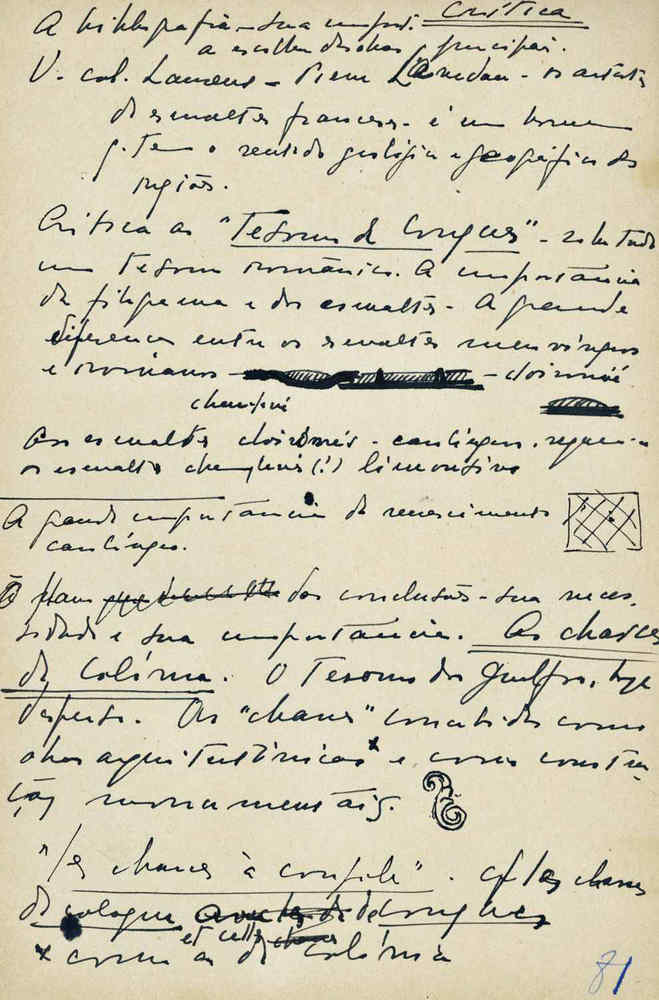 Crítica
A bibliografia – sua import.
a escolha das obras principais.
V. col. Laurens – Pierre Lavedan – os artistas
de esmaltes franceses – é um homem
q. tem o sentido geológico e geográfico das
regiões.
Crítica ao "Tesouro de Conques" – sobretudo
um Tesouro românico. A importância
da filigrana e dos esmaltes – A grande
diferença entre os esmaltes merovíngios
e românos – – cloisonné
champlevé
Aos esmaltes cloisonnés – carolíngios,
os esmaltes champlevés (!)
A grande importância do renascimento
carolíngio.
O plano das conclusões – sua neces
sidade e sua importância. As chasses
de Colónia. O Tesouro dos Guelfos, hoje
disperso. As "chasses" concebidas como
obras arquitectónicas x e como constru
ções monumentais.
"les chasses à coupole". Cf les chasses
de Cologne de Conques
et celles
x como as de Colónia
81